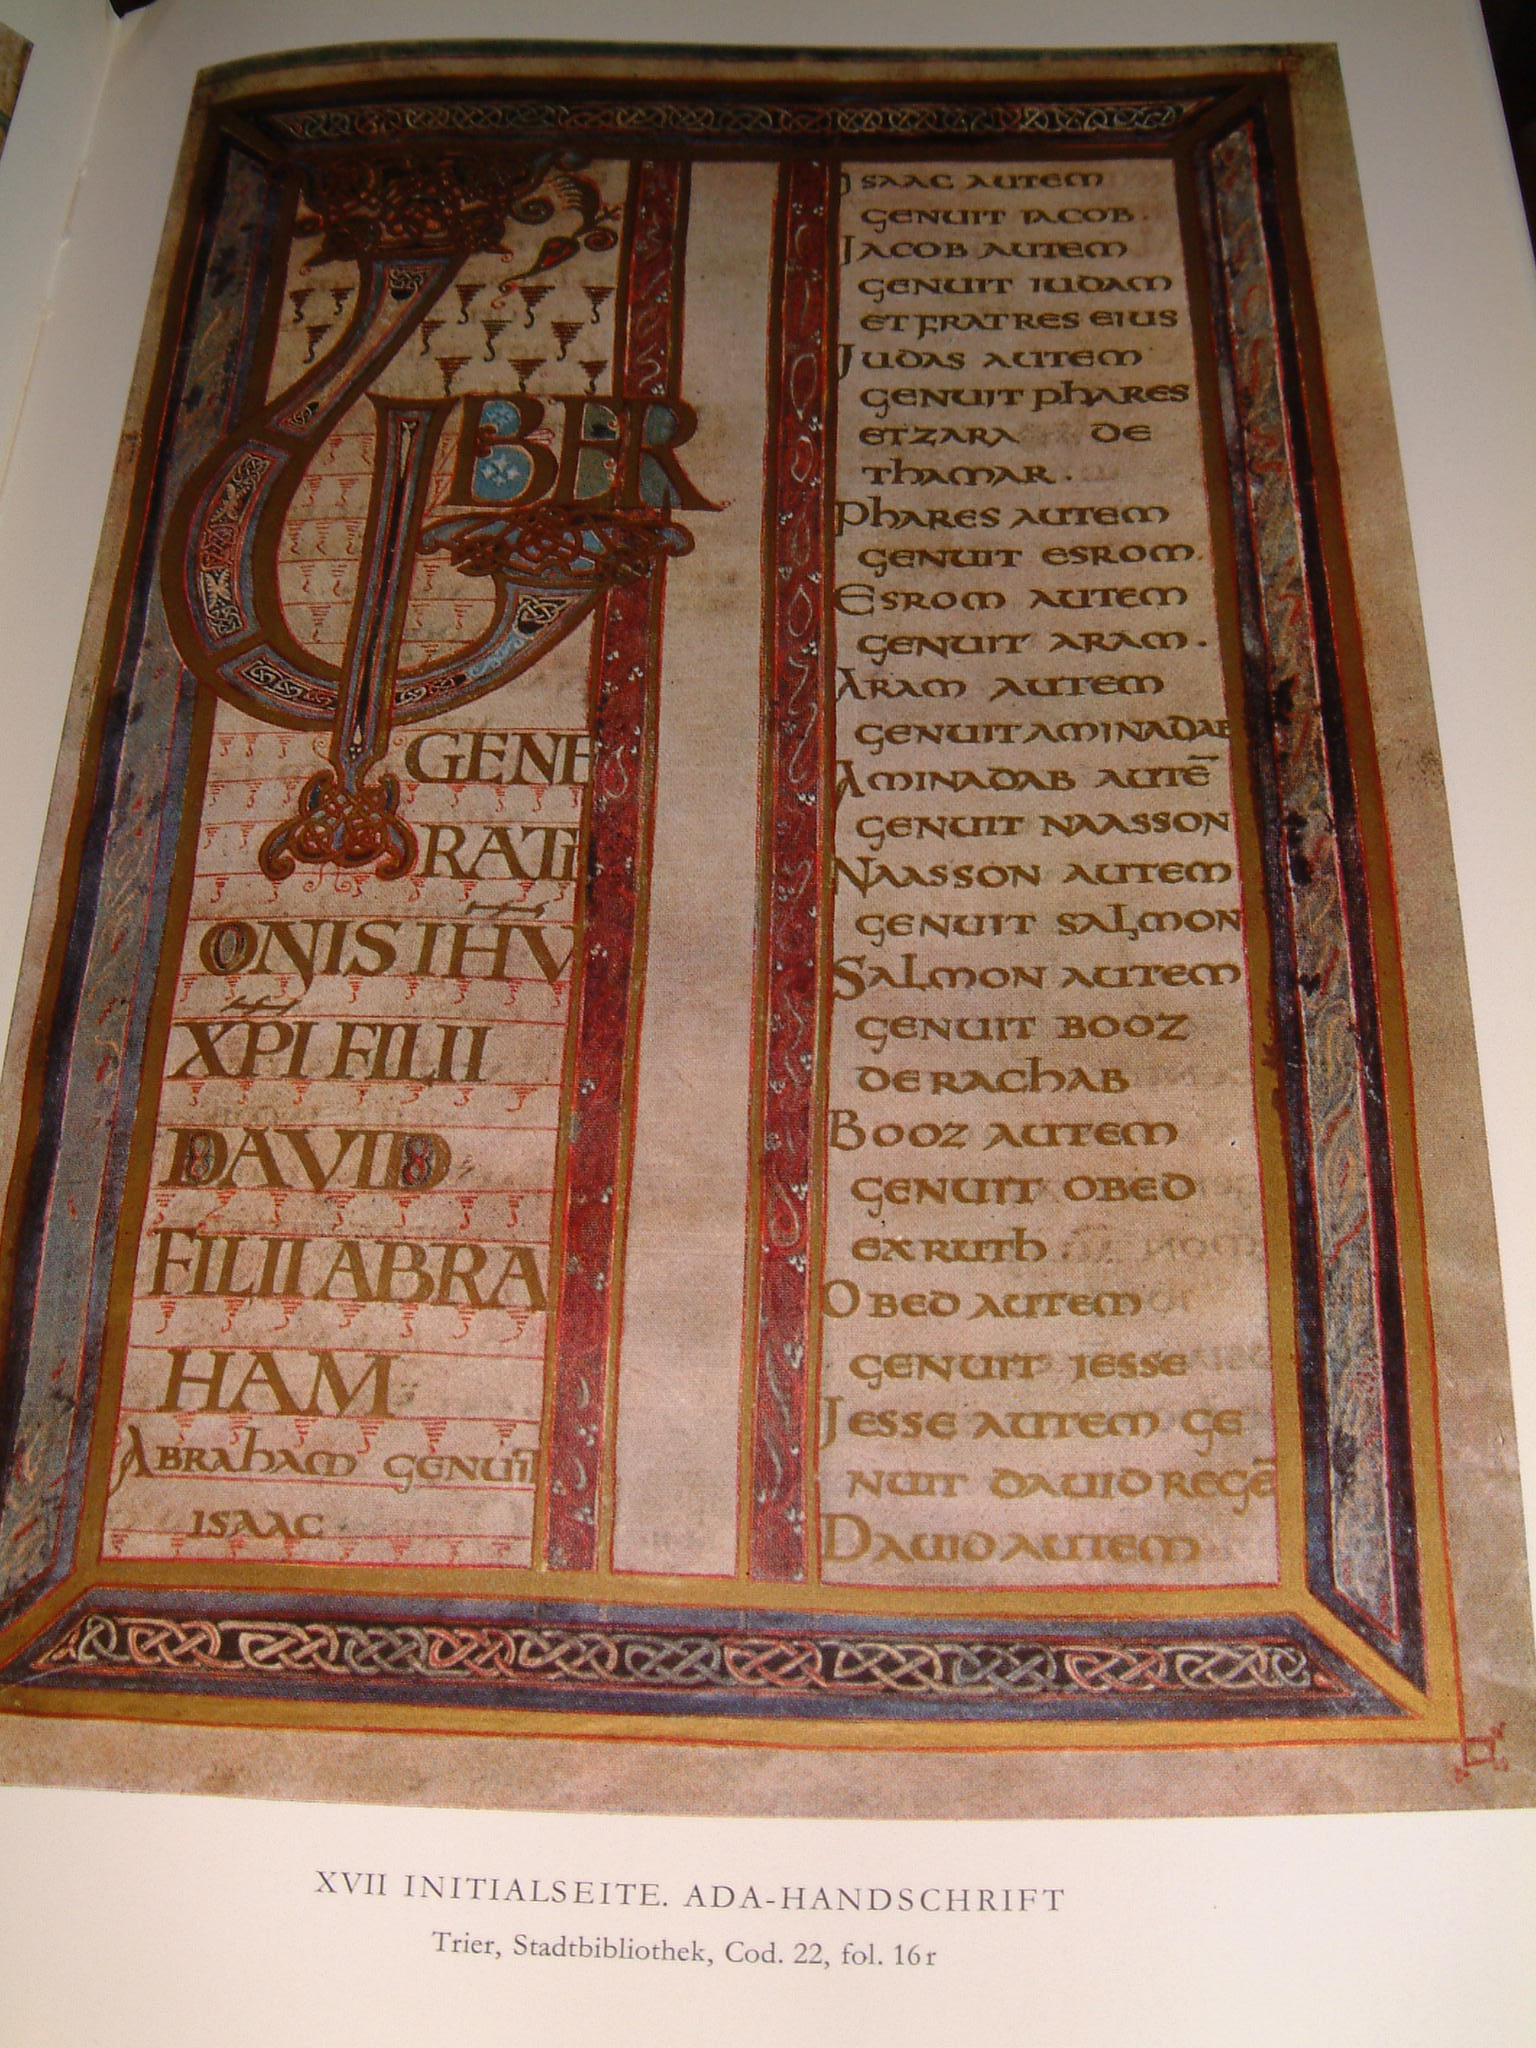 LIBER
GENE
RATI
ONIS IHV
XPI FILII
DAVID
FILII ABRA
HAM
Abraham genuit
isaac
Isaac autem
genuit iacob.
Jacob autem
genuit iudam
et fratres eius
Judas autem
genuit phares
et zara de
thamar.
Phares autem
genuit esrom.
Esrom autem
genuit aram.
Aram autem
genuit aminadab
Aminadab autē
genuit naasson
Naasson autem
genuit salmon
Salmon autem
genuit booz
de rachab
Booz autem
genuit obed
ex ruth
Obed autem
genuit jesse
Jesse autem ge
nuit dauid regē
Dauid autem
XVII INITIALSEITE. ADA-HANDSCHRIFT
Trier, Stadtbibliothek, Cod. 22, fol. 16r